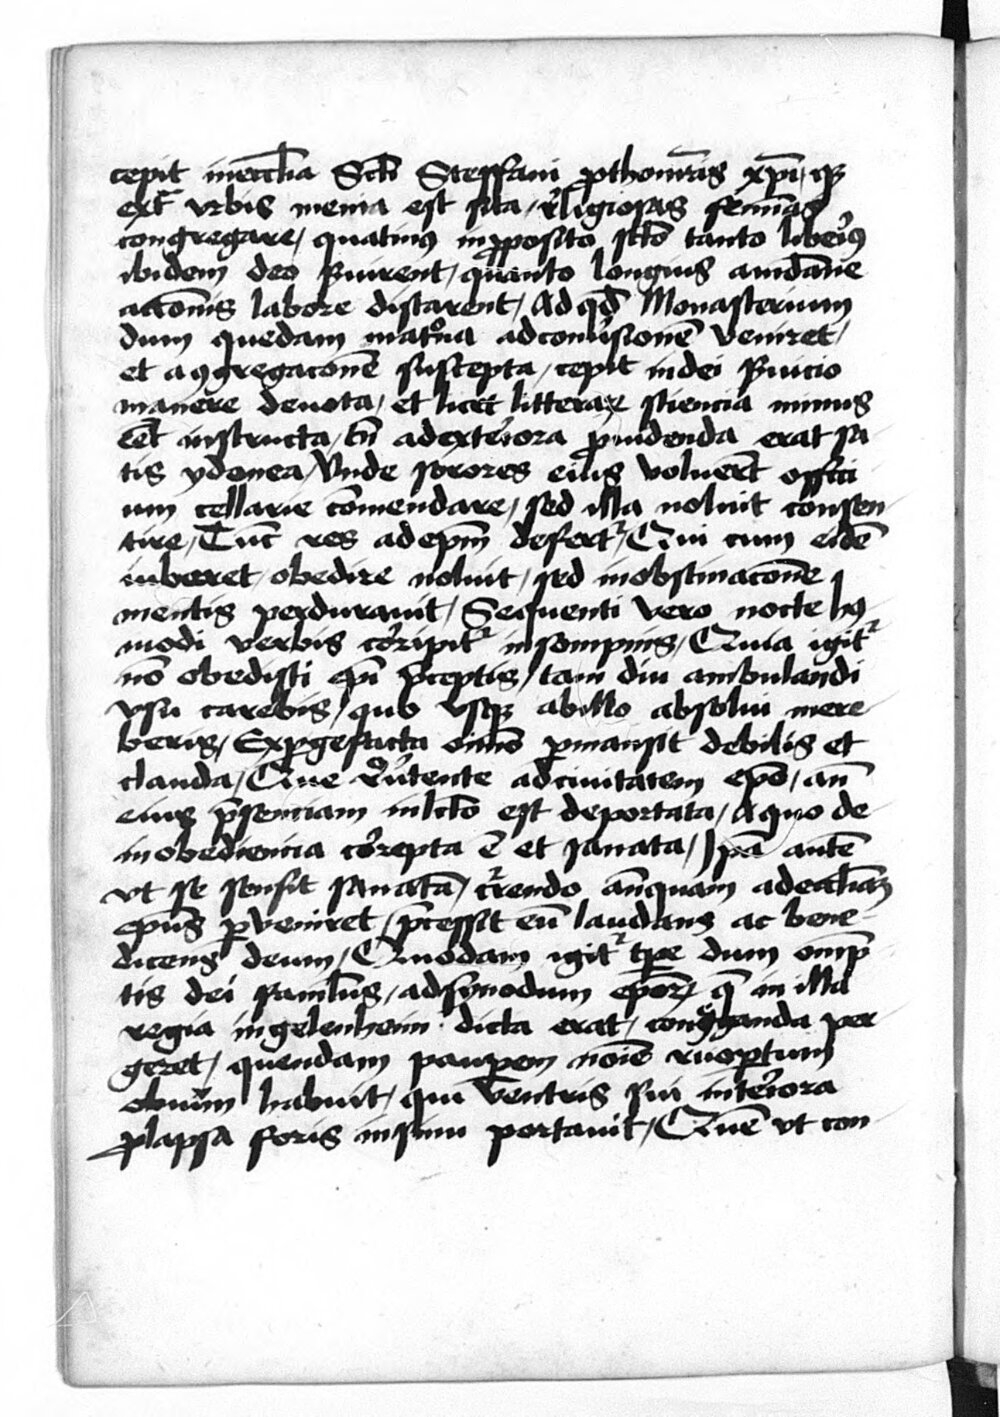 cepit in eccl̄ia Sc̄ti Steffani ꝓthomr̄is xp̄i, q̄
ext᷑ vrbis menia est sita, r̄ligiosas femīas
congregare, quatinꝰ in ꝓposito sc̄to tanto liberiꝰ
ibidem deo s̄uirent, quanto longius a mūdane
acc̄onis labore distarent, Ad qd̄ Monasterium
dum quedam mat̄ona ad conūsionē veniret,
et a ꝯgregacōne suscepta, cepit in dei s̄uicio
manere deuota, et licet litteraꝝ sciencia minus
eēt instructa, tn̄ ad exteriora ꝓuidenda erat sa
tis ydonea, Vnde sorores eius voluer̄t offici
um cellarie cōmendare, sed illa noluit consen
tire, Tūc res ad ep̄m defert᷑, Qui cum eidē
iuberet obedire noluit, sed in obstinacōne
mentis perdurauit, Sequenti vero nocte hꝰ
modi verbis cōripit᷑ in sompnis, Quia igit᷑
nō obedisti ep̄i p̄ceptis, tam diu ambulandi
vsu carebis, quo vsqꝫ ab illo absolui mere
beris, Exp̱gefacta oīno p̱mansit debilis et
clauda, Que r̄u̇tente ad ciuitatem ep̄o, an̄
eius p̄senciam in lc̄to est deportata, A quo de
in obediencia cōrepta ē et sanata, Ip̄a autē
vt se sensit sanatā, c᷑rendo anq̄uam ad eccl̄iaꝫ
ep̄us p̱veniret, p̄cessit eū laudans ac bene-
dicens deum, Quodam igit᷑ tp̄e dum om̄p̄
tis dei famulus, ad synodum ep̄oꝝ, q̄ in illa
regia ingelenheim dicta erat, congͤganda per
geret, quendam paup̱em noīe ruop̱tum
obuīm habuit, qui ventris sui interiora
ꝓlapsa foris in sinu portauit, Quē vt con-